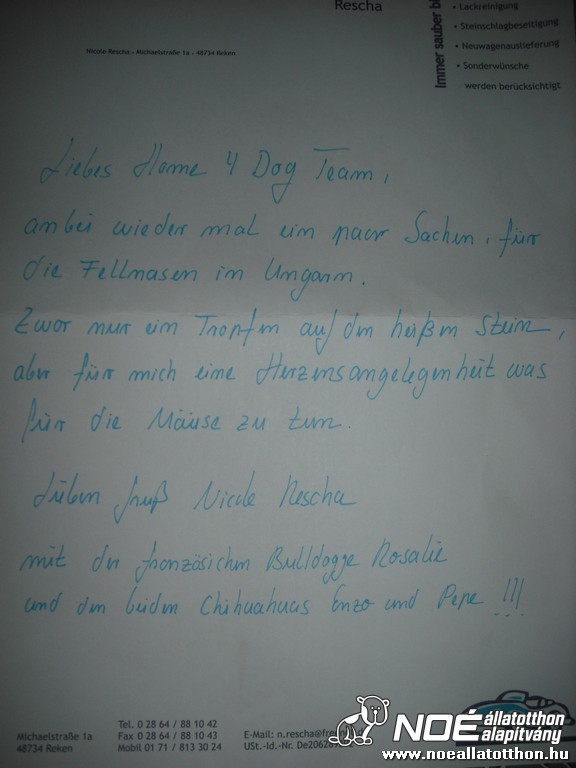 Rescha
Immer sauber
• Lackreinigung
• Steinschlagbeseitigung
• Neuwagenauslieferung
• Sonderwünsche
werden berücksichtigt
Nicole Rescha - Michaelstraße 1a - 48734 Reken
Liebes Home 4 Dog Team,
anbei wieder mal ein paar Sachen, für
die Fellnasen in Ungarn.
Zwar nur ein Tropfen auf den heißen Stein,
aber für mich eine Herzensangelegenheit was
für die Mäuse zu tun.
Lieben Gruß Nicole Rescha
mit der französichen Bulldogge Rosalie
und den beiden Chihuahuas Enzo und Pepe !!!
Michaelstraße 1a
48734 Reken
Tel. 0 28 64 / 88 10 42
Fax 0 28 64 / 88 10 43
Mobil 01 71 / 813 30 24
E-Mail: n.rescha@
USt.-Id.-Nr.
NOÉ állatotthon alapítvány
www.noeallatotthon.hu